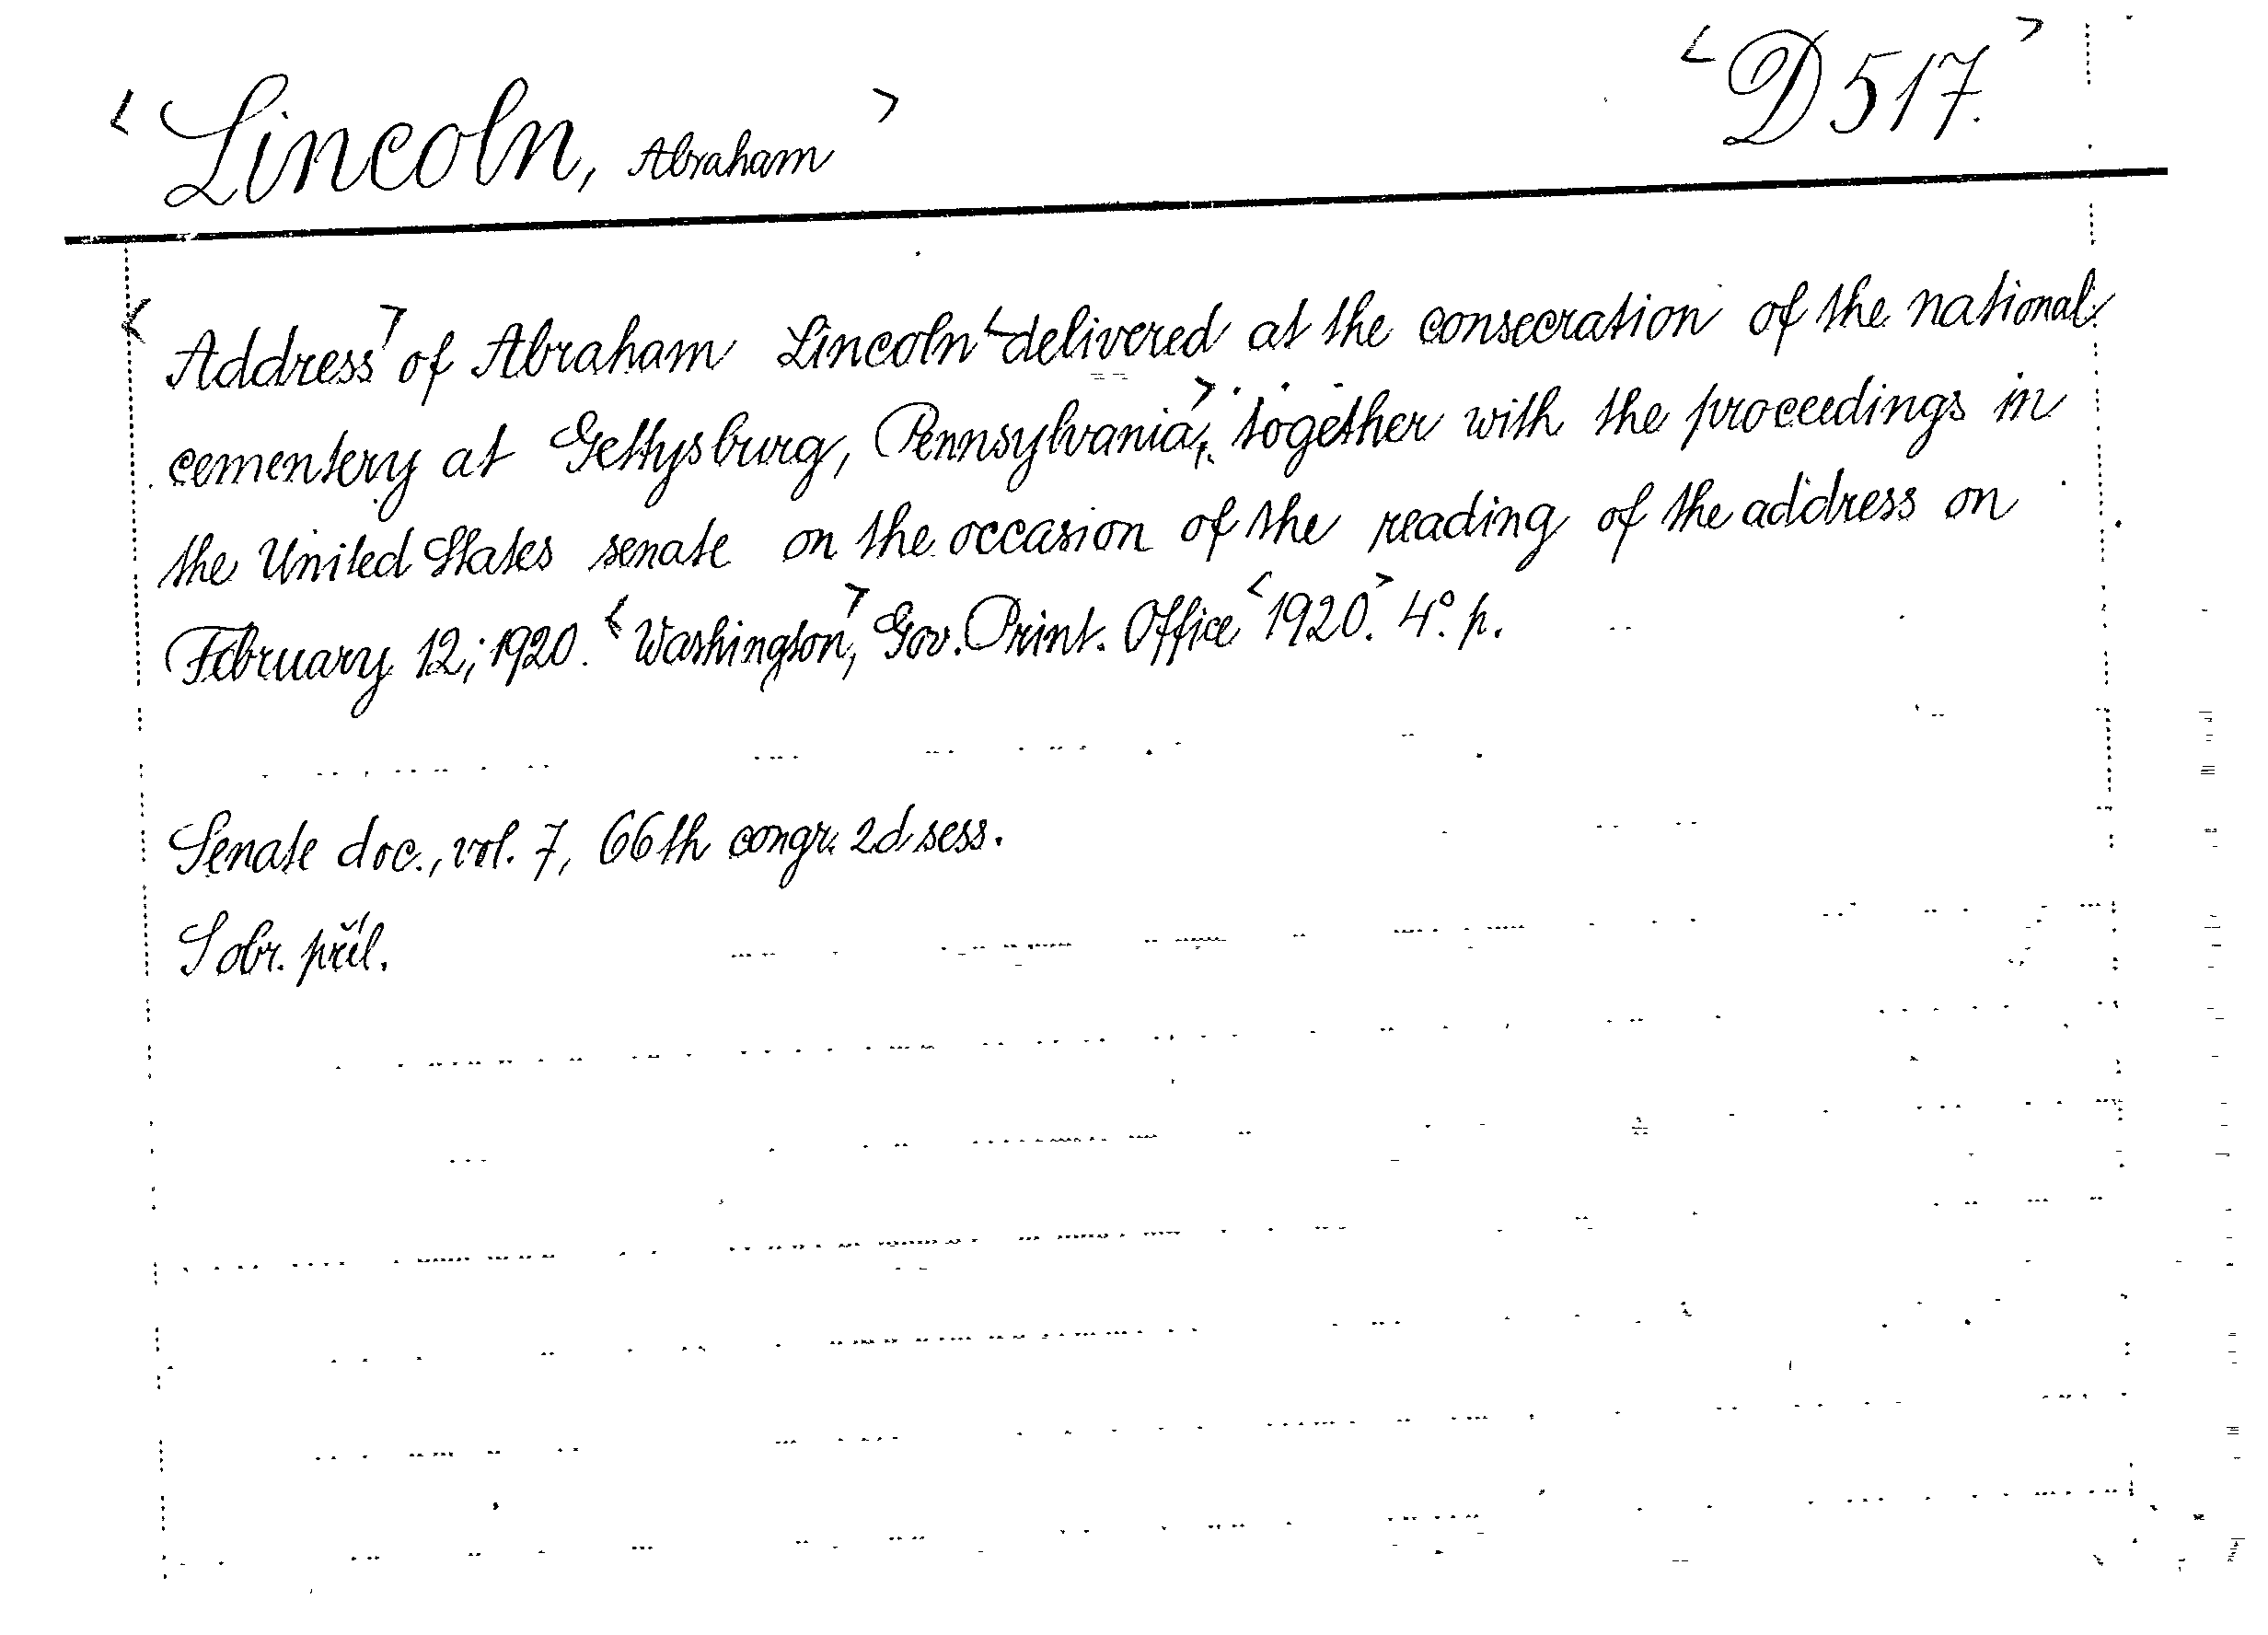 <Lincoln, Abraham> <D 517.>
<Address> of Abraham Lincoln <delivered at the consecration of the national
cementery at Gettysburg, Pennsylvania>, together with the proceedings in
the United States senate on the occasion of the reading of the address on
February 12, 1920. <Washington>, Gov. Print. Office <1920.> 4°. p.
Senate doc., vol. 7, 66th congr. 2d sess.
S obr. příl.